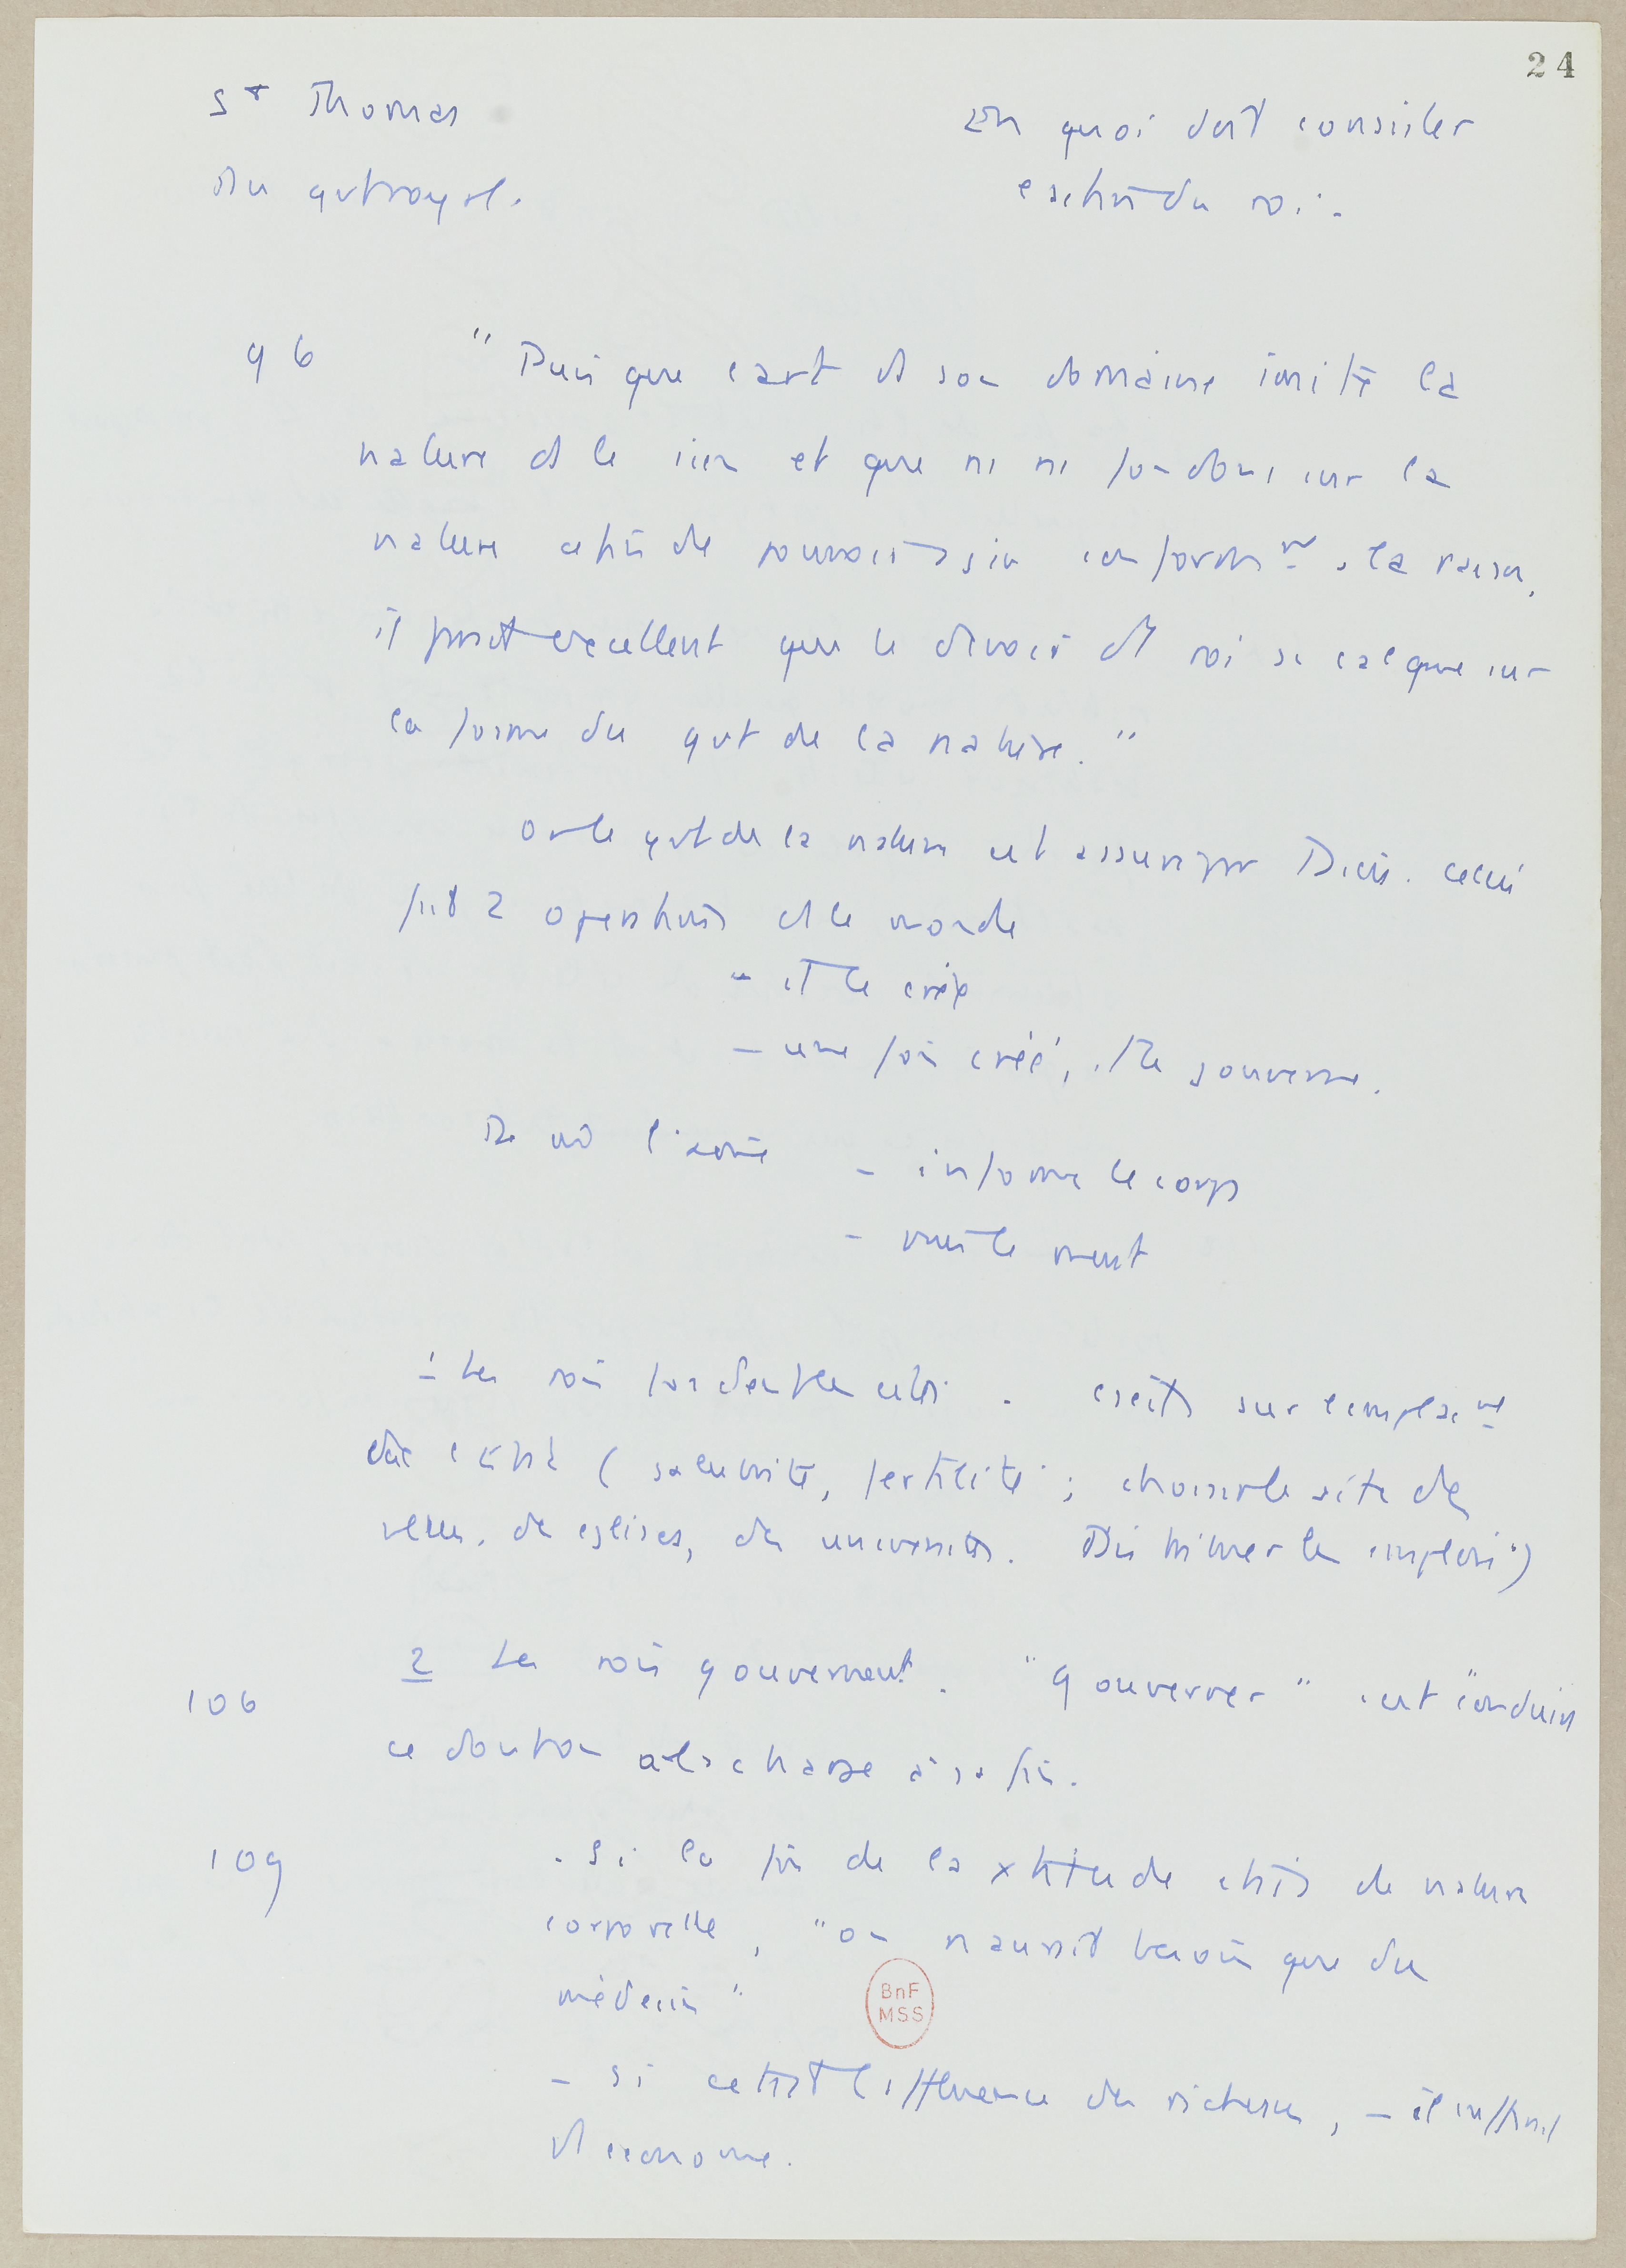 24
St Thomas
Du gvt royal.
En quoi doit consister
l'action du roi.
96
" Puisque l'art ds son domaine imite la
nature ds le sien et que ns ns fondons sur la
nature afin de pouvoir agir conformmt à la raison,
il paraît excellent que le devoir d'1 roi se calque sur
la forme du gvt de la nature. "
Or le gvt de la nature est assuré par Dieu. Celui-ci
fait 2 opérations ds le monde
- il le crée
- une fois créé, il le gouverne.
De m l'âme - informe le corps
- puis le meut
1 Les rois fondent les cités.
(salubrité, fertilité ; choisir le site des
villes, des églises, des universités. Distribuer les emplois)
106
2 Les rois gouvernent. "Gouverner" c'est "conduire
ce dont on a la charge à sa fin.
109
- Si la fin de la xtitude était de nature
corporelle, "on n'aurait besoin que du
médecin"
BnF
MSS
- si c'était l'affluence des richesses, - il suffirait
d'1 économe.